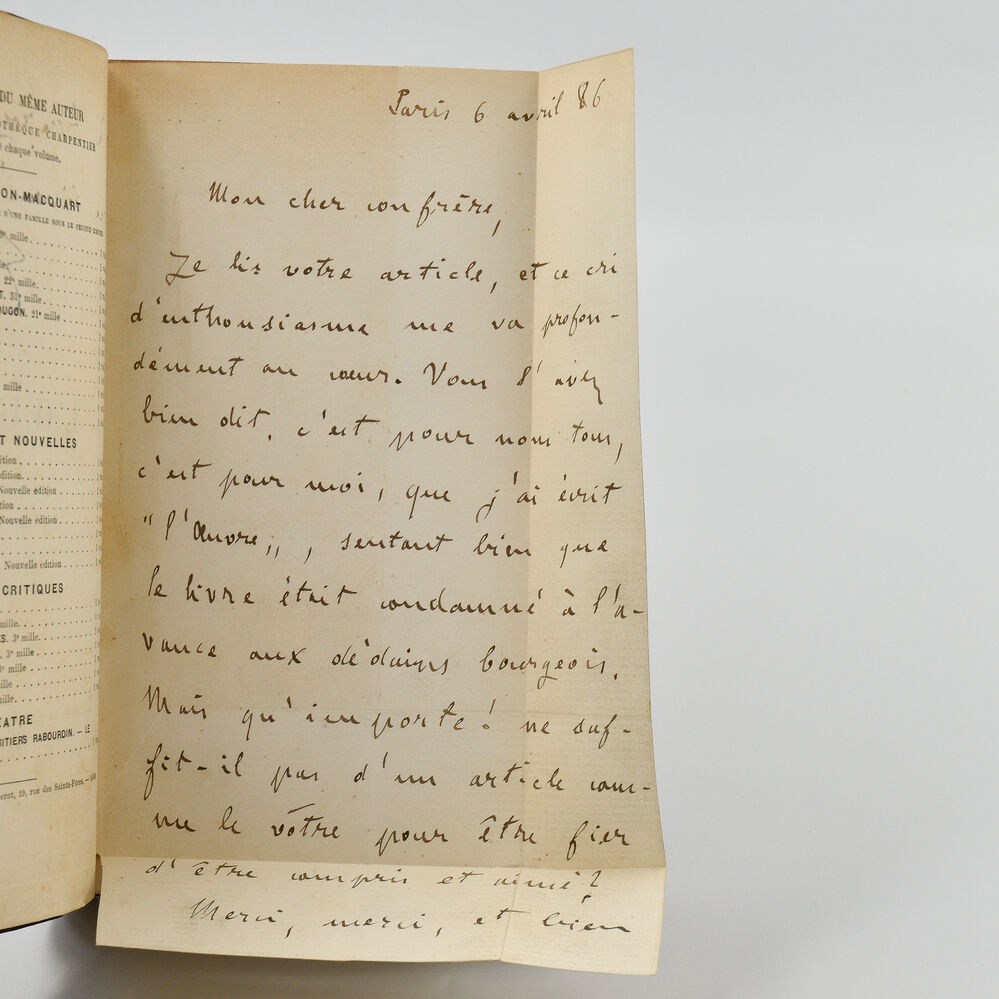 DU MÊME AUTEUR
THÈQUE CHARPENTIER
chaque volume.
ON-MACQUART
D'UNE FAMILLE SOUS LE SECOND EMPIRE
mille
22e mille.
T. 31e mille
OUGON. 21e mille
mille
T NOUVELLES
ition
édition.
Nouvelle édition
tion
Nouvelle édition
Nouvelle édition
CRITIQUES
mille.
ES. 3e mille.
3e mille
e mille
ille
mille.
ATRE
RITIERS RABOURDIN. — LE
erot, 19, rue des Saints-Pères. —
Paris 6 avril 86
Mon cher confrère,
Je lis votre article, et ce cri
d'enthousiasme me va profon-
dément au cœur. Vous l'avez
bien dit, c'est pour nous tous,
c'est pour moi, que j'ai écrit
"l'Œuvre„, sentant bien que
le livre était condamné à l'a-
vance aux dédains bourgeois.
Mais qu'importe! ne suf-
fit-il pas d'un article com-
me le vôtre pour être fier
d'être compris et aimé?
Merci, merci, et bien